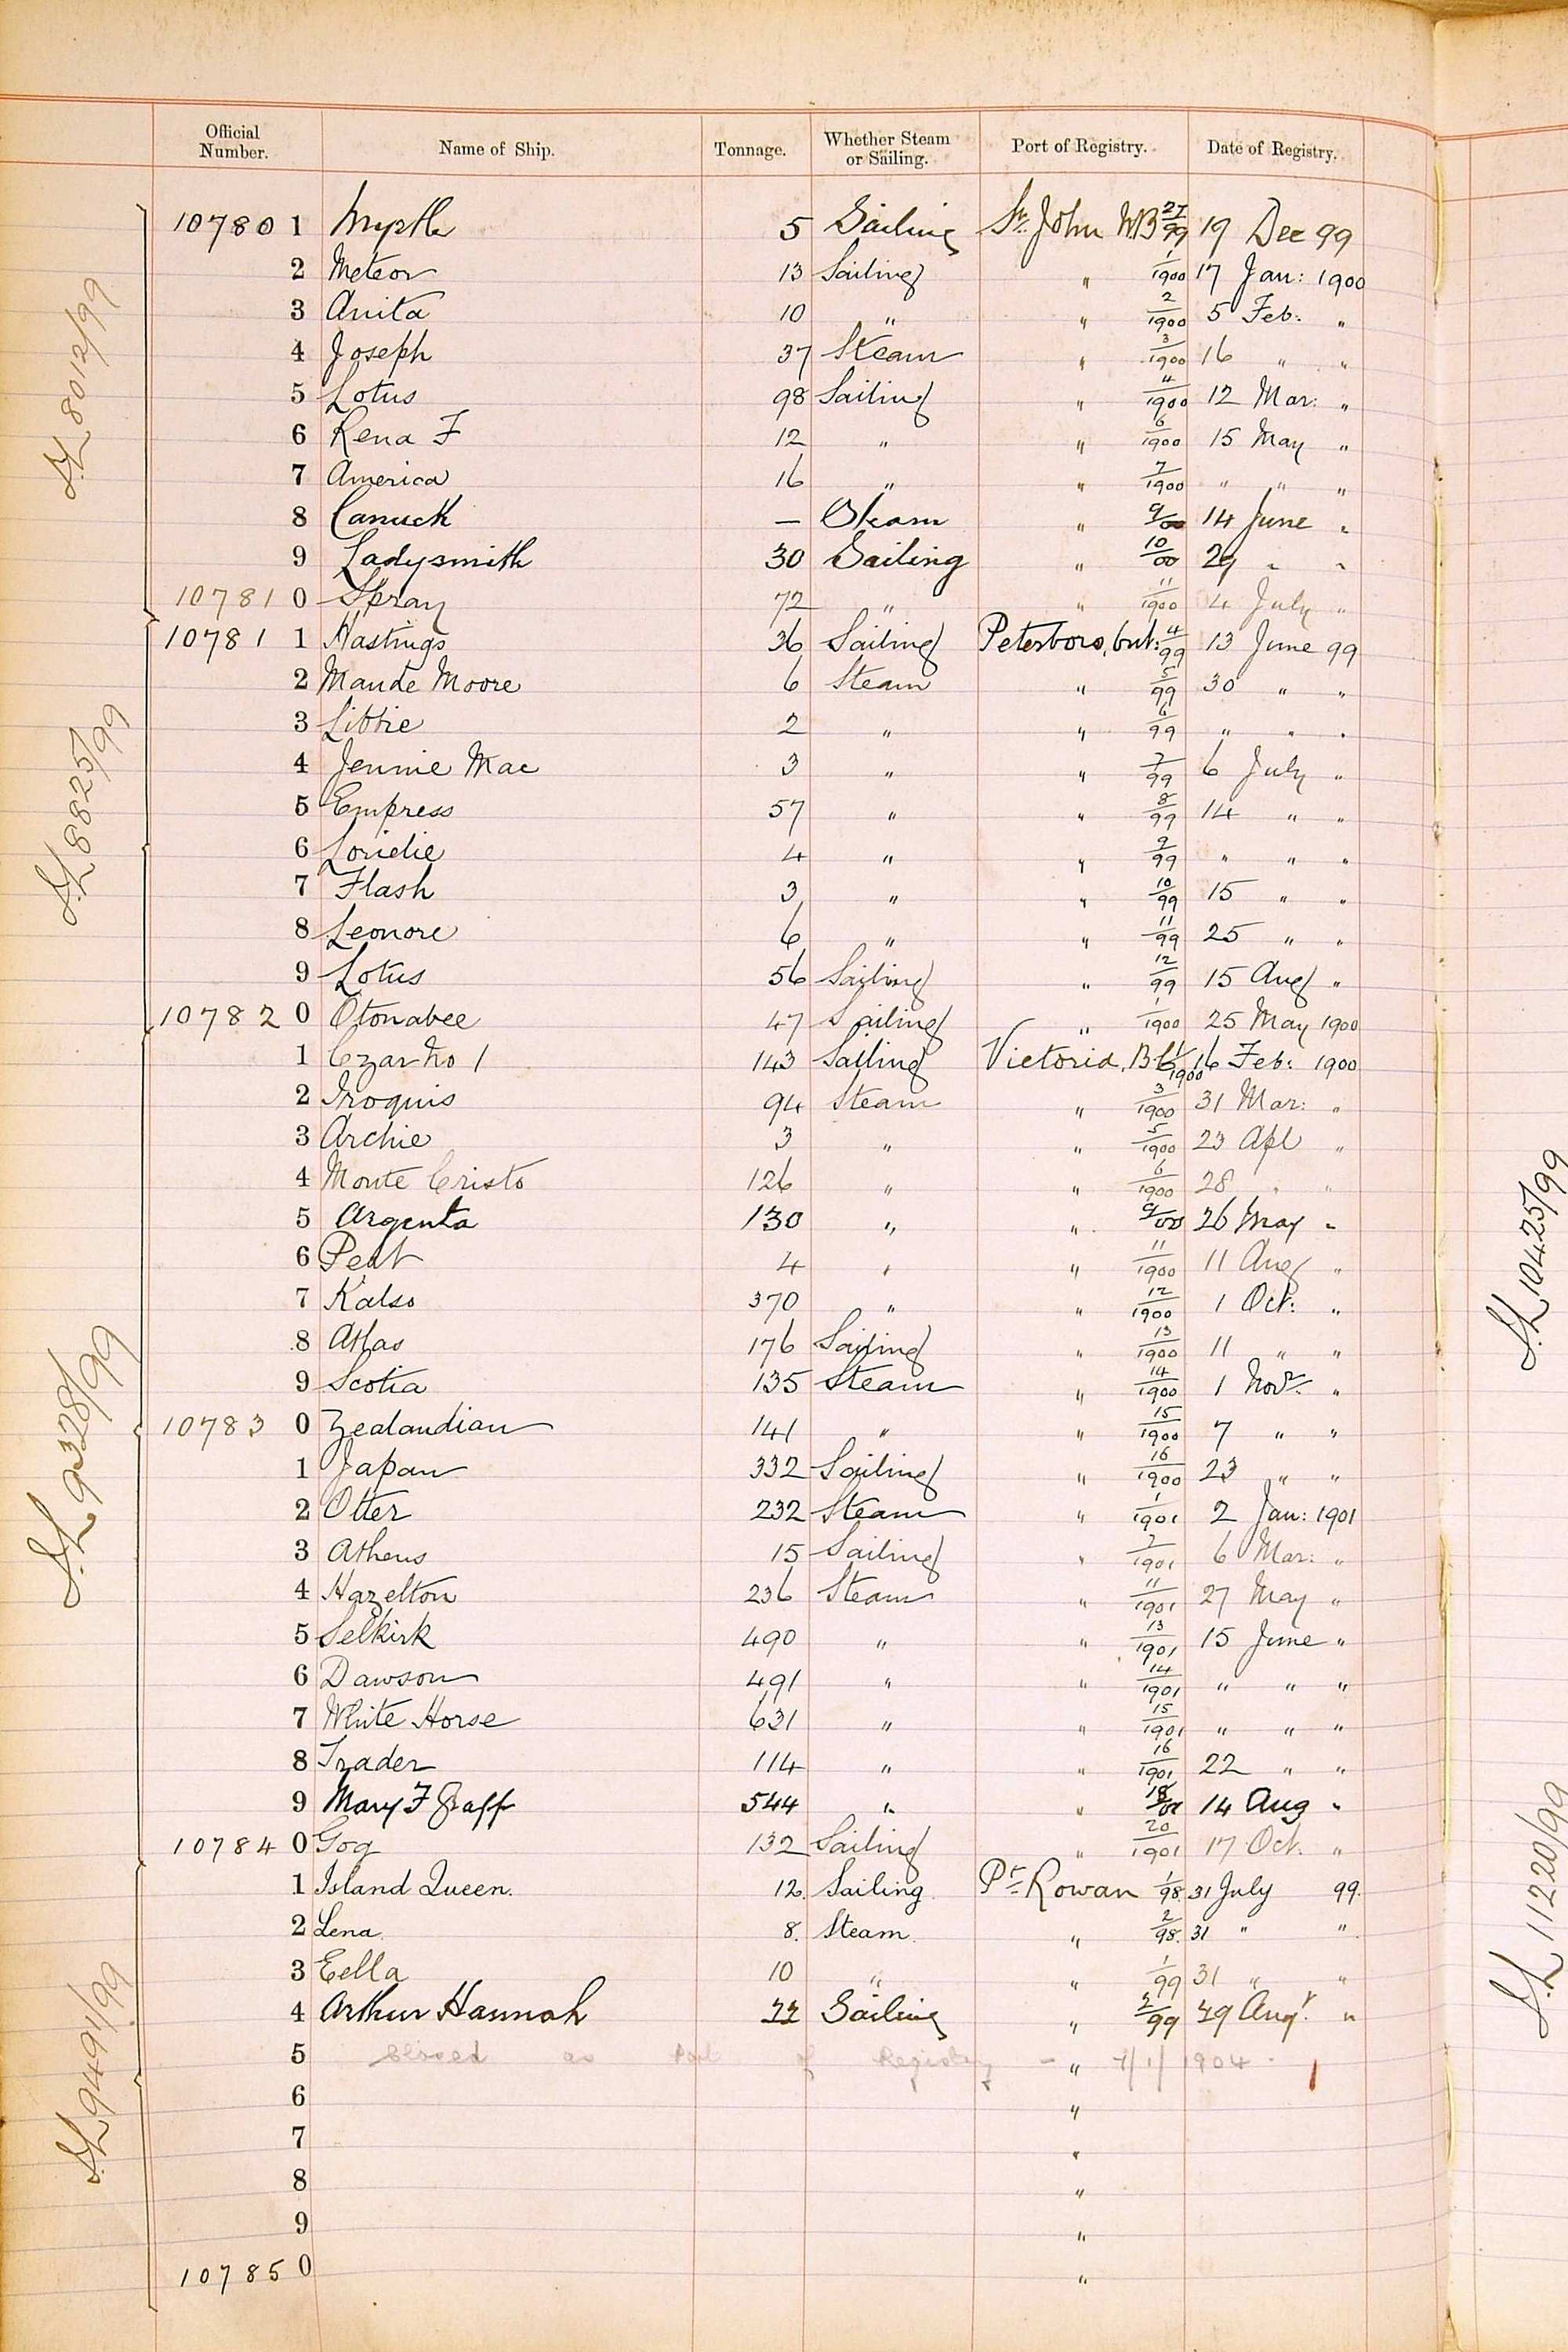 Official Number. Name of Ship. Tonnage. Whether Steam or Sailing. Port of Registry. Date of Registry.
10780 1 Myrtle 5 Sailing St. John NB 27/99 19 Dec 99
2 Meteor 13 Sailing " 1/1900 17 Jan: 1900
3 Anita 10 " " 2/1900 5 Feb: "
4 Joseph 37 Steam " 3/1900 16 " "
5 Lotus 98 Sailing " 4/1900 12 Mar: "
6 Rena F 12 " " 6/1900 15 May "
7 America 16 " " 7/1900 " " "
8 Canuck — Steam " 9/00 14 June "
9 Ladysmith 30 Sailing " 10/00 29 " "
10781 0 Spray 72 " " 11/1900 4 July "
10781 1 Hastings 36 Sailing Peterboro, Ont: 4/99 13 June 99
2 Maude Moore 6 Steam " 5/99 30 " "
3 Libbie 2 " " 6/99 " " "
4 Jennie Mac 3 " " 7/99 6 July "
5 Empress 57 " " 8/99 14 " "
6 Loridie 4 " " 9/99 " " "
7 Flash 3 " " 10/99 15 " "
8 Leonore 6 " " 11/99 25 " "
9 Lotus 56 Sailing " 12/99 15 Aug "
10782 0 Otonabee 47 Sailing " 1/1900 25 May 1900
1 Czar No 1 143 Sailing Victoria, B.C. 1/1900 16 Feb: 1900
2 Iroquis 94 Steam " 3/1900 31 Mar: "
3 Archie 3 " " 5/1900 23 Apl "
4 Monte Cristo 126 " " 6/1900 28 " "
5 Argenta 130 " " 9/00 26 May "
6 Pelt 4 " " 11/1900 11 Aug "
7 Kalso 370 " " 12/1900 1 Oct: "
8 Atlas 176 Sailing " 13/1900 11 " "
9 Scotia 135 Steam " 14/1900 1 Novr "
10783 0 Zealandian 141 " " 15/1900 7 " "
1 Japan 332 Sailing " 16/1900 23 " "
2 Otter 232 Steam " 1/1901 2 Jan: 1901
3 Athens 15 Sailing " 7/1901 6 Mar: "
4 Hazelton 236 Steam " 11/1901 27 May "
5 Selkirk 490 " " 13/1901 15 June "
6 Dawson 491 " " 14/1901 " " "
7 White Horse 631 " " 15/1901 " " "
8 Trader 114 " " 16/1901 22 " "
9 Mary F Graff 544 " " 18/01 14 Aug "
10784 0 Gog 132 Sailing " 20/1901 17 Oct. "
1 Island Queen. 12. Sailing Pt. Rowan 1/98. 31 July 99.
2 Lena. 8. Steam. " 2/98. 31 " "
3 Eella 10 " " 1/99 31 " "
4 Arthur Hannah 22 Sailing " 2/99 29 Augt. "
5 Closed as Port of Registry — " 7/1/1904.
6 "
7 "
8 "
9 "
10785 0 "
S.L 8012/99
S.L 8825/99
S.L 9328/99
S.L 9491/99
S.L 10425/99
S.L 11220/99